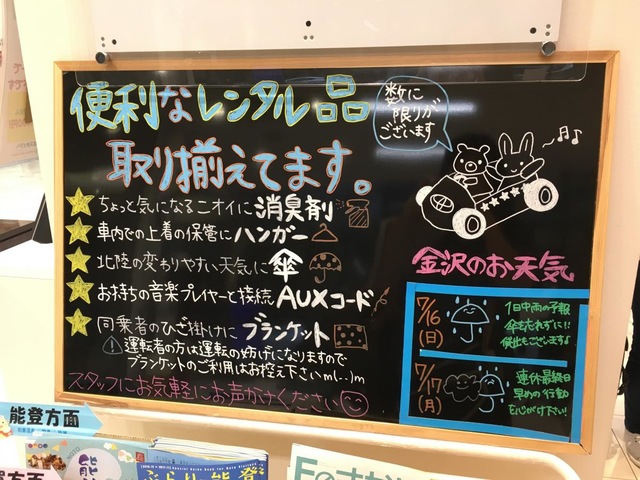 便利なレンタル品
取り揃えてます。
数に
限りが
ございます
ちょっと気になるニオイに 消臭剤
車内での上着の保管に ハンガー
北陸の変わりやすい天気に 傘
お持ちの音楽プレイヤーと接続 AUXコード
同乗者のひざ掛けに ブランケット
運転者の方は運転の妨げになりますので
ブランケットのご利用はお控え下さいm(..)m
スタッフにお気軽にお声がけください
金沢のお天気
7/16
(日)
1日中雨の予報
傘を忘れずに!!
貸出もございます♪
7/17
(月)
連休最終日
早めの行動
を心がけ下さい!
能登方面
ぶらり能登